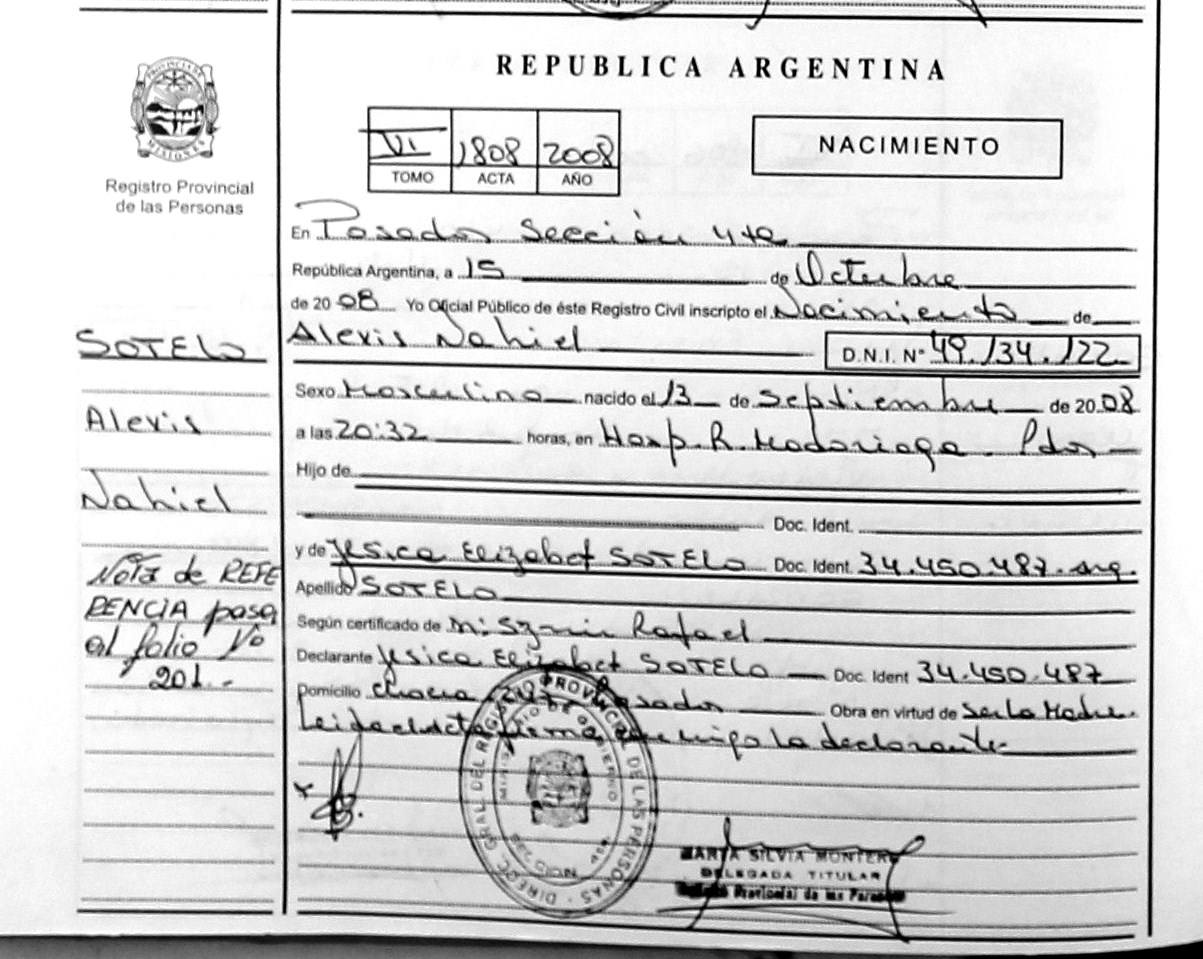 PROVINCIA DE
MISIONES
Registro Provincial
de las Personas
REPUBLICA ARGENTINA
VI 1808 2008
TOMO ACTA AÑO
NACIMIENTO
En Posadas Sección 4ta
República Argentina, a 15 de Octubre
de 2008 Yo Oficial Público de éste Registro Civil inscripto el Nacimiento de
Alexis Nahiel D.N.I. N° 49.134.122
Sexo Masculino nacido el 13 de Septiembre de 2008
a las 20:32 horas, en Hosp. R. Madariaga - Pdas
Hijo de
Doc. Ident.
y de Yesica Elizabet SOTELO Doc. Ident. 34.450.487. arg.
Apellido SOTELO
Según certificado de Rafael
Declarante Yesica Elizabet SOTELO Doc. Ident 34.450.487
Domicilio Chacra Posadas Obra en virtud de Ser la Madre.
Leida el Acta firma conmigo la declarante
SOTELO
Alexis
Nahiel
Nota de REFE
RENCIA pasa
al folio Nº
201.-
DIRECC. GRAL DEL REGIST. PROVINCIAL DE LAS PERSONAS
MINISTERIO DE GOBIERNO
MARIA SILVIA MONTERO
DELEGADA TITULAR
Provincial de las Personas